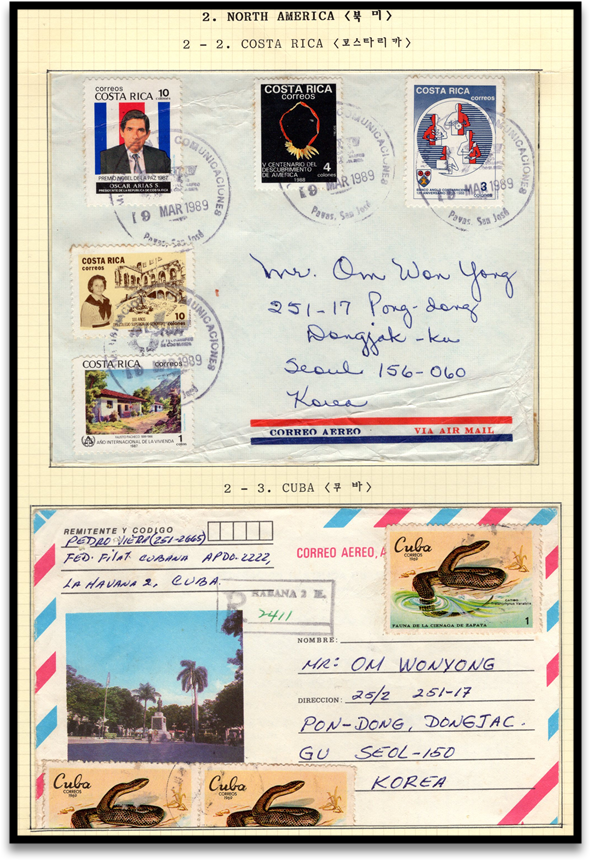 2. NORTH AMERICA <북 미>
2 - 2. COSTA RICA <코스타리카>
correos 10
COSTA RICA
PREMIO NOBEL DE LA PAZ 1987
OSCAR ARIAS S.
PRESIDENTE DE LA REPUBLICA DE COSTA RICA
COSTA RICA
correos
4
V CENTENARIO DEL
DESCUBRIMIENTO
DE AMERICA
1988 colones
COSTA RICA
correos
3
colones
COMUNICACIONES
19 MAR 1989
Pavas, San José
COMUNICACIONES
19 MAR 1989
Pavas, San José
19 MAR 1989
Pavas, San José
COSTA RICA
correos
10
colones
COMUNICACIONES
19 MAR 1989
COSTA RICA correos
AÑO INTERNACIONAL DE LA VIVIENDA
1987
1
colones
Mr. Om Won Yong
251-17 Pong-dong
Dongjak-ku
Seoul 156-060
Korea
CORREO AEREO VIA AIR MAIL
2 - 3. CUBA <쿠 바>
REMITENTE Y CODIGO
PEDRO VIERA (251-2665)
FED. FILAT CUBANA APDO. 2222,
LA HAVANA 2, CUBA.
CORREO AEREO, A
R HABANA 2
2411
Cuba
CORREOS
1969
1
FAUNA DE LA CIENAGA DE ZAPATA
NOMBRE:
MR: OM WONYONG
DIRECCION: 25/2 251-17
PON-DONG, DONGJAC.
GU SEOL-150
KOREA
Cuba
CORREOS
1969
Cuba
CORREOS
1969